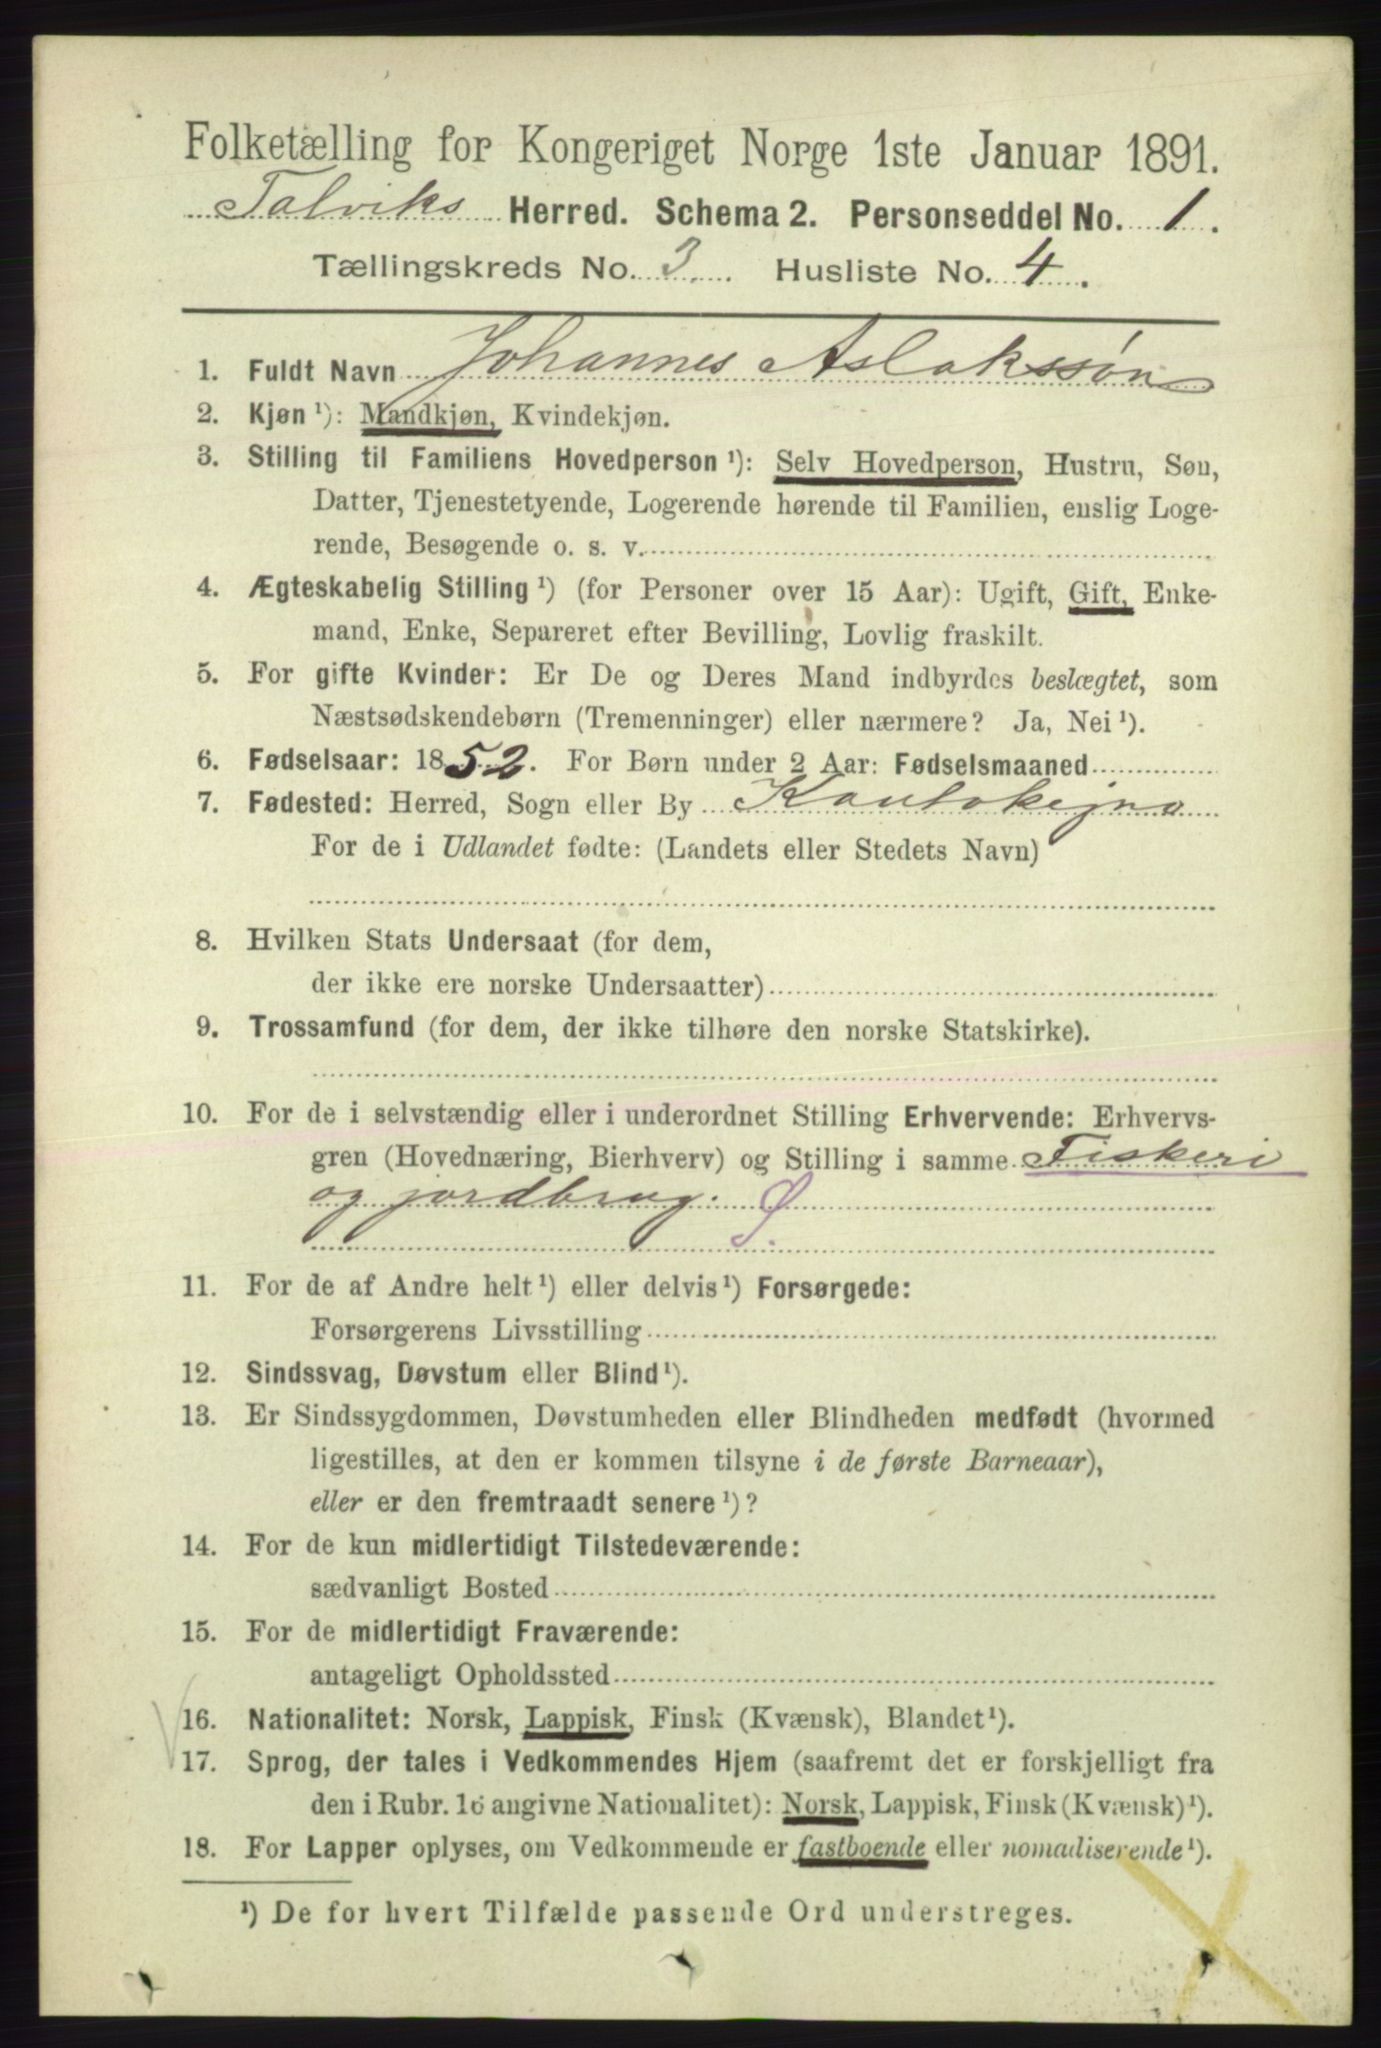 Folketælling for Kongeriget Norge 1ste Januar 1891.
Talviks Herred. Schema 2. Personseddel No. 1.
Tællingskreds No. 3. Husliste No. 4.
1. Fuldt Navn Johannes Aslakssøn
2. Kjøn ¹): Mandkjøn, Kvindekjøn.
3. Stilling til Familiens Hovedperson ¹): Selv Hovedperson, Hustru, Søn,
Datter, Tjenestetyende, Logerende hørende til Familien, enslig Loge-
rende, Besøgende o. s. v.
4. Ægteskabelig Stilling ¹) (for Personer over 15 Aar): Ugift, Gift, Enke-
mand, Enke, Separeret efter Bevilling, Lovlig fraskilt.
5. For gifte Kvinder: Er De og Deres Mand indbyrdes beslægtet, som
Næstsødskendebørn (Tremenninger) eller nærmere? Ja, Nei ¹).
6. Fødselsaar: 1852. For Børn under 2 Aar: Fødselsmaaned
7. Fødested: Herred, Sogn eller By Kautokejno
For de i Udlandet fødte: (Landets eller Stedets Navn)
8. Hvilken Stats Undersaat (for dem,
der ikke ere norske Undersaatter)
9. Trossamfund (for dem, der ikke tilhøre den norske Statskirke).
10. For de i selvstændig eller i underordnet Stilling Erhvervende: Erhvervs-
gren (Hovednæring, Bierhverv) og Stilling i samme Fiskeri
og jordbrug. S.
11. For de af Andre helt ¹) eller delvis ¹) Forsørgede:
Forsørgerens Livsstilling
12. Sindssvag, Døvstum eller Blind ¹).
13. Er Sindssygdommen, Døvstumheden eller Blindheden medfødt (hvormed
ligestilles, at den er kommen tilsyne i de første Barneaar),
eller er den fremtraadt senere ¹)?
14. For de kun midlertidigt Tilstedeværende:
sædvanligt Bosted
15. For de midlertidigt Fraværende:
antageligt Opholdssted
16. Nationalitet: Norsk, Lappisk, Finsk (Kvænsk), Blandet ¹).
17. Sprog, der tales i Vedkommendes Hjem (saafremt det er forskjelligt fra
den i Rubr. 16 angivne Nationalitet): Norsk, Lappisk, Finsk (Kvænsk) ¹).
18. For Lapper oplyses, om Vedkommende er fastboende eller nomadiserende ¹).
¹) De for hvert Tilfælde passende Ord understreges.